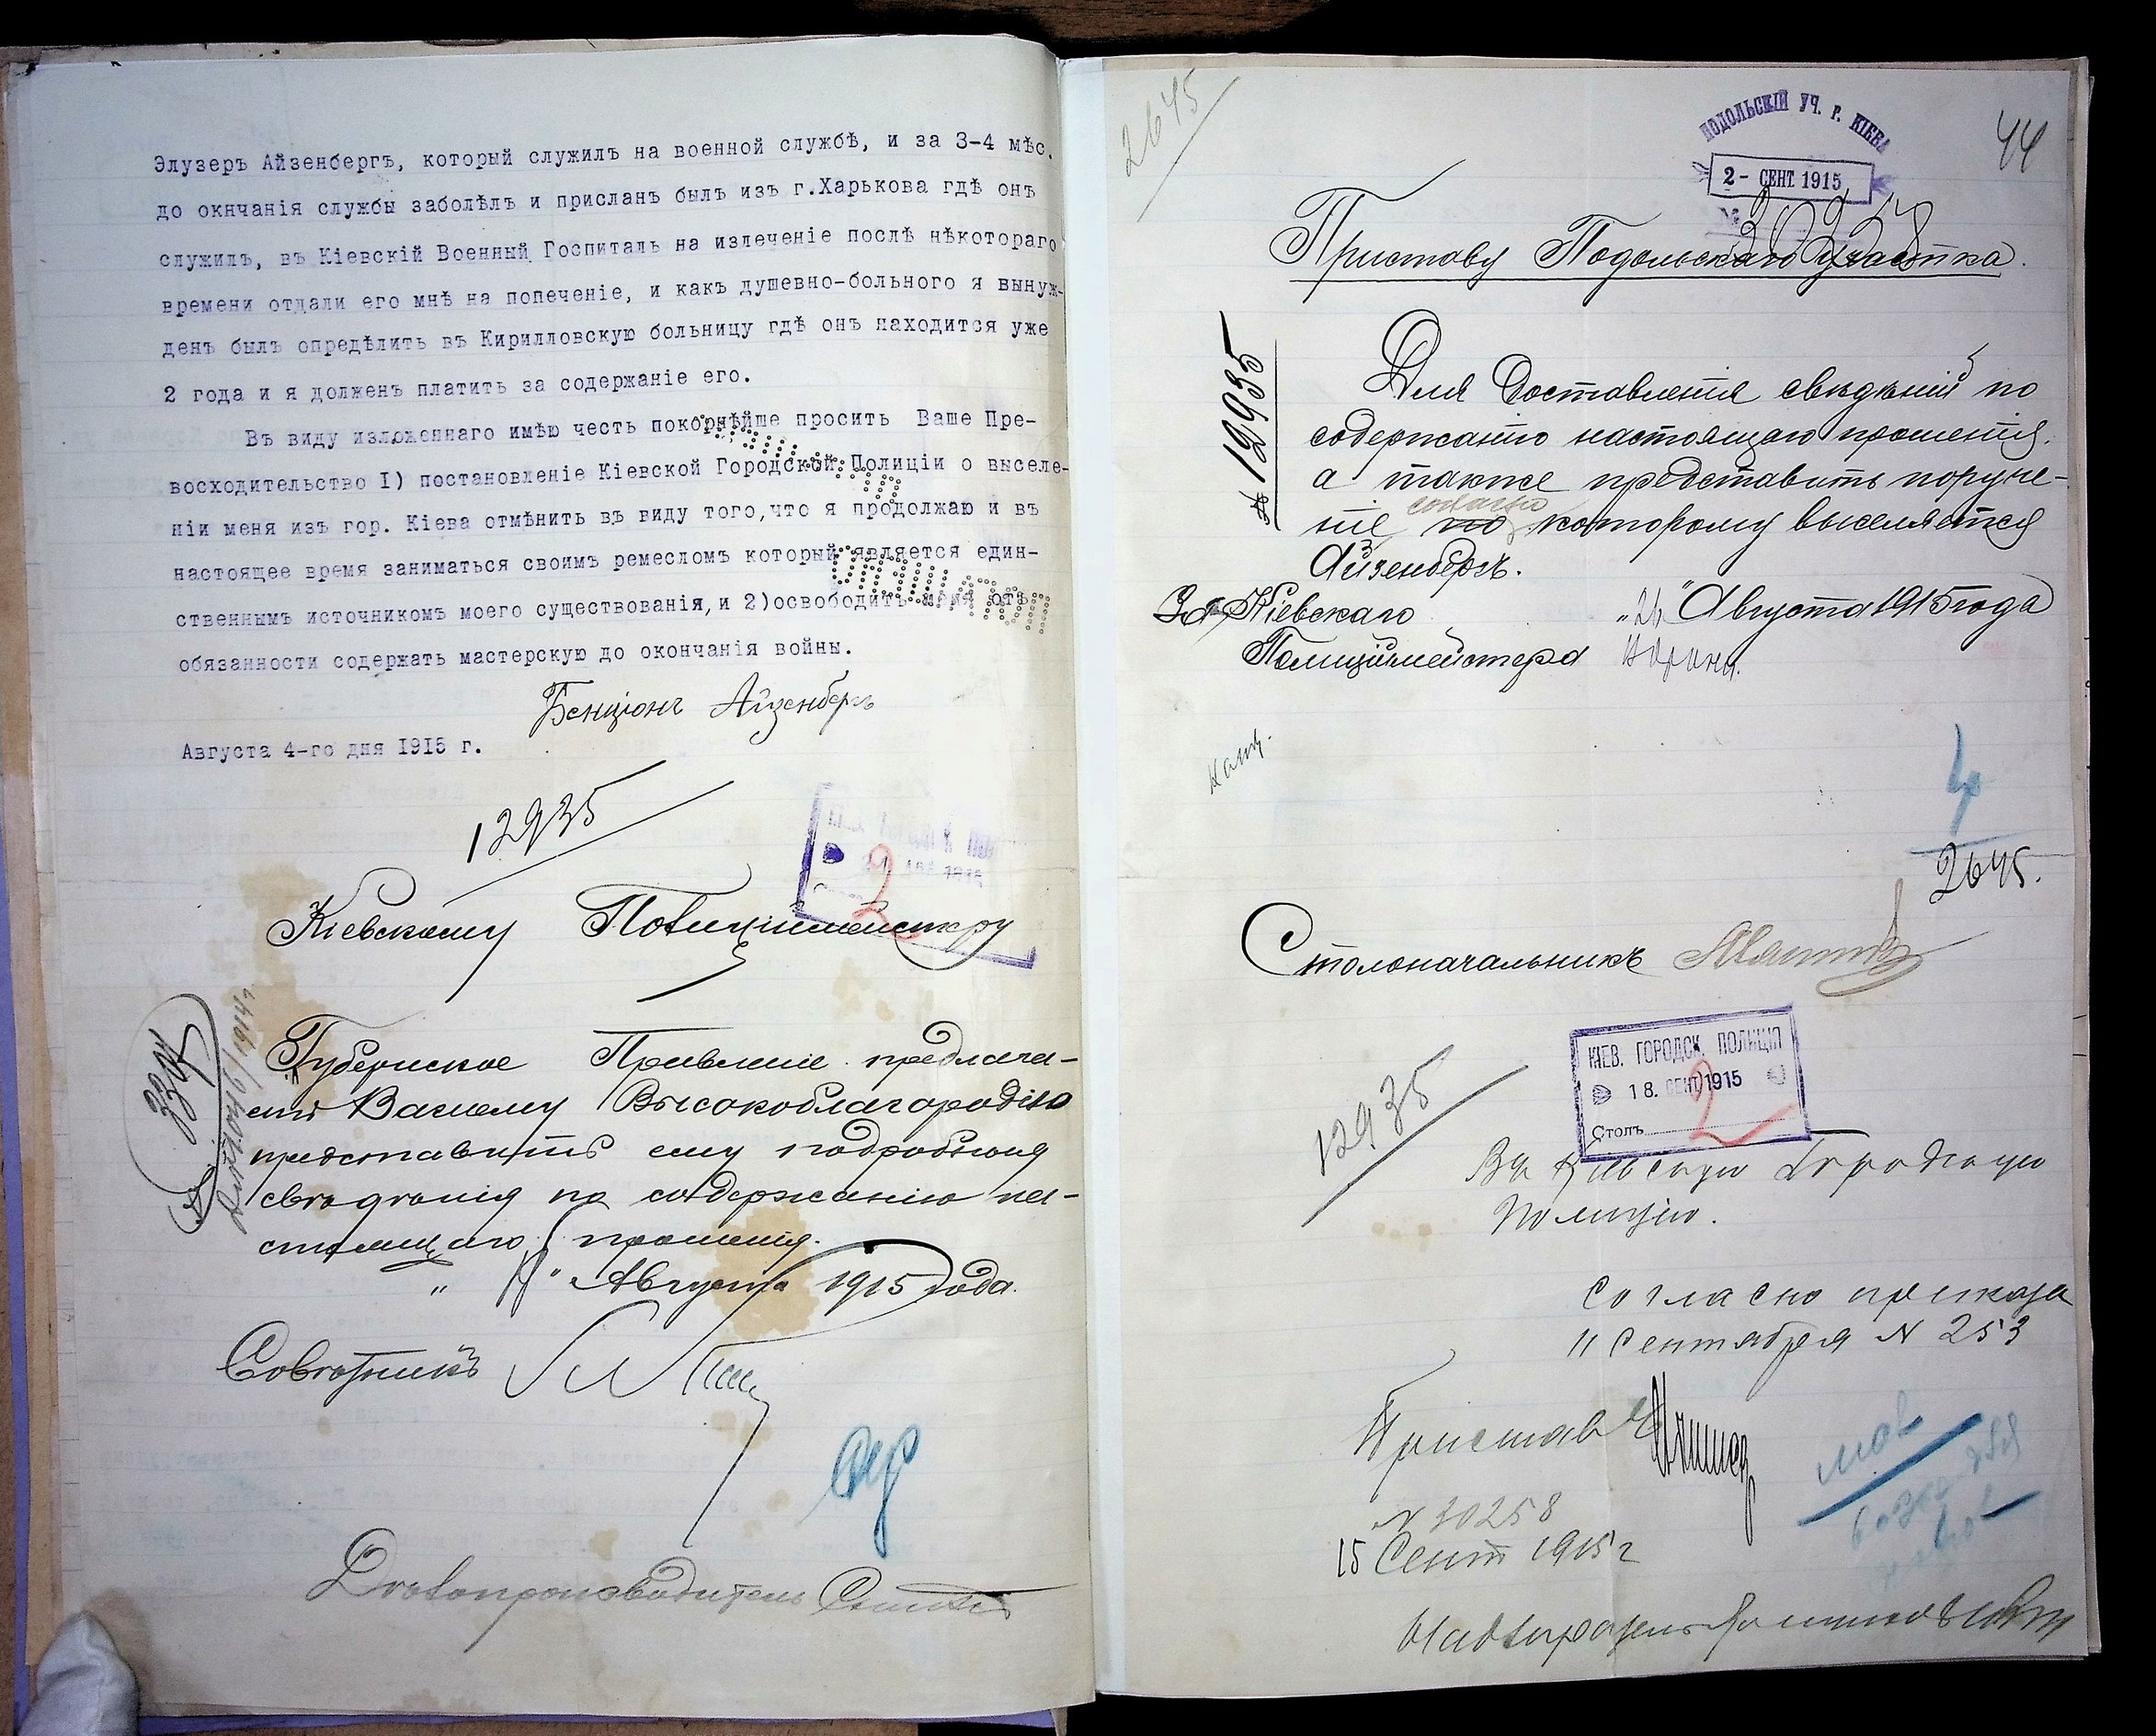 Элузеръ Айзенбергъ, который служилъ на военной службѣ, и за 3-4 мѣс.
до окнчанія службы заболѣлъ и присланъ былъ изъ г.Харькова гдѣ онъ
служилъ, въ Кіевскій Военный Госпиталь на излеченіе послѣ нѣкотораго
времени отдали его мнѣ на попеченіе, и какъ душевно-больного я вынуж-
денъ былъ опредѣлить въ Кирилловскую больницу гдѣ онъ находится уже
2 года и я долженъ платить за содержаніе его.
Въ виду изложеннаго имѣю честь покорнѣйше просить Ваше Пре-
восходительство I) постановленіе Кіевской Городской Полиціи о выселе-
ніи меня изъ гор. Кіева отмѣнить въ виду того,что я продолжаю и въ
настоящее время заниматься своимъ ремесломъ который является един-
ственнымъ источникомъ моего существованія,и 2)освободить меня отъ
обязанности содержать мастерскую до окончанія войны.
Бенціонъ Айзенбергъ
Августа 4-го дня 1915 г.
12935
2
Кіевскому Полиціймейстеру
Губернское Правленіе предлага-
етъ Вашему Высокоблагородію
представить ему подробныя
свѣдѣнія по содержанію на-
стоящаго прошенія.
" Августа 1915 года.
Совѣтникъ
Дѣлопроизводитель
2645
ПОДОЛЬСКІЙ УЧ. Г. КІЕВА
2 - СЕНТ 1915
№ 30258
44
Приставу Подольскаго участка.
№ 12935
Для доставленія свѣдѣній по
содержанію настоящаго прошенія.
а также представить поруче-
ніе согласно которому выселяется
Айзенбергъ.
За Кіевскаго "26" Августа 1915 года
Полиціймейстера
4
2645.
Столоначальникъ
КІЕВ. ГОРОДСК. ПОЛИЦІЮ
18. СЕНТ 1915
Столъ 2
12935
Въ Кіевскую Городскую
Полицію.
Согласно приказа
11 Сентября N 253
Приставъ
N 30258
15 Сент 1915 г
Надзиратель